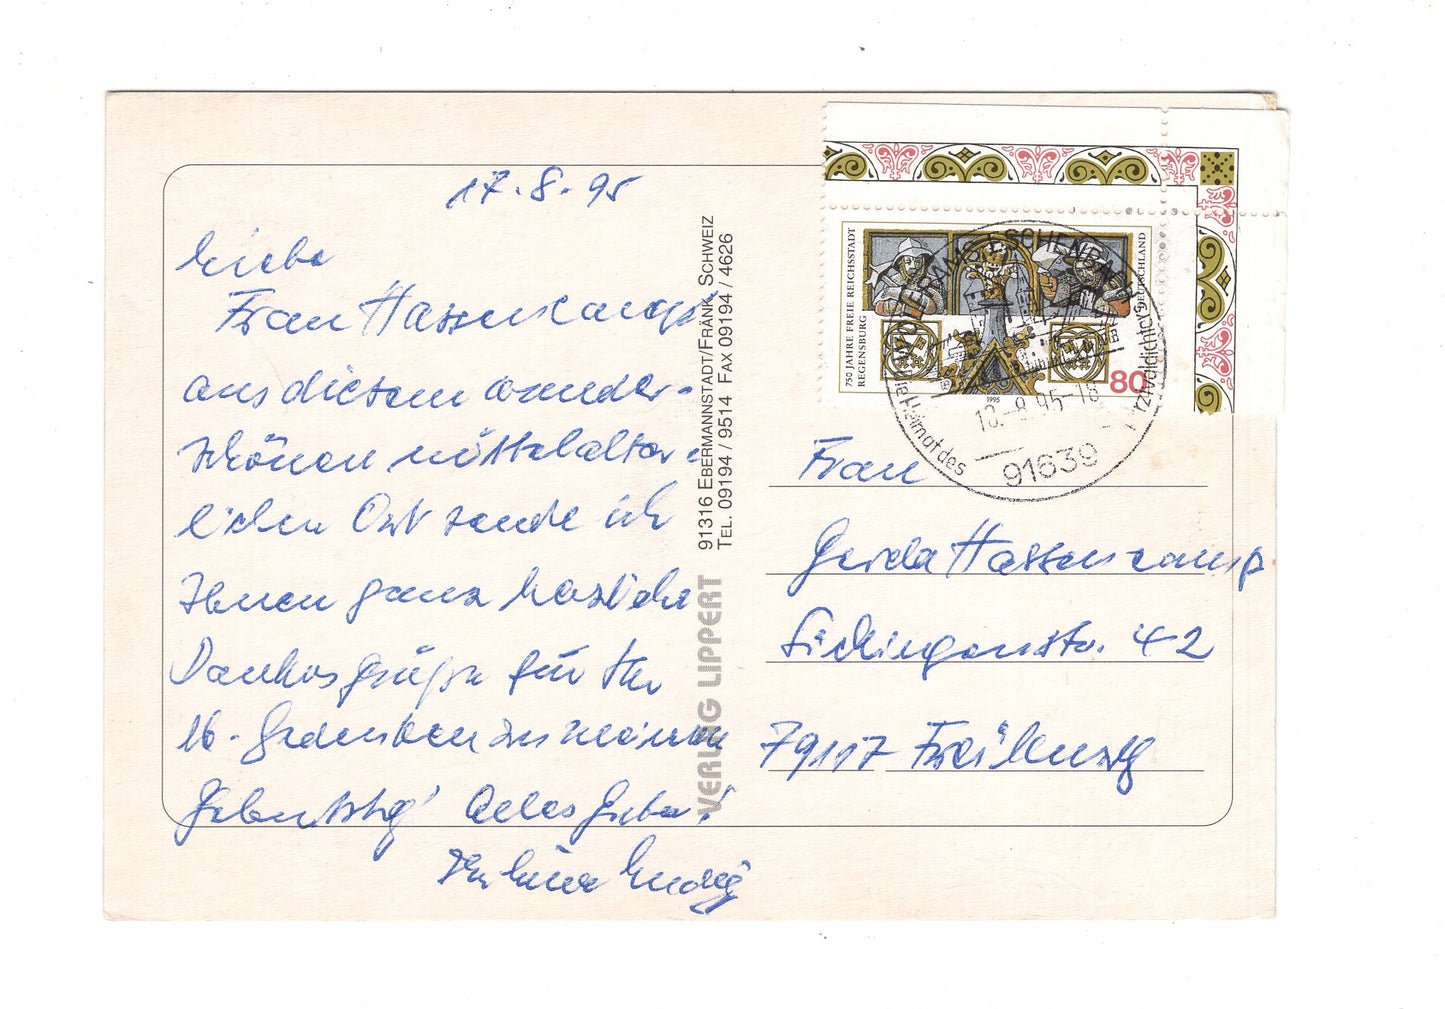 17.8.95
Liebe
Frau Hassencamp
aus diesem wunder-
schönen mittelalter-
lichen Ort sende ich
Ihnen ganz herzliche
Dankesgrüße für Ihr
lb. Gedenken zu meinem
Geburtstag! Alles Liebe!
Ihr
VERLAG LIPPERT
91316 EBERMANNSTADT/FRÄNK. SCHWEIZ
TEL. 09194 / 9514 FAX 09194 / 4626
750 JAHRE FREIE REICHSSTADT
REGENSBURG
DEUTSCHLAND
80
1995
ESCHENBACH
Heimat des
18.-8.95-18
91639
Frau
Gerda Hassencamp
Sickingenstr. 42
79117 Freiburg